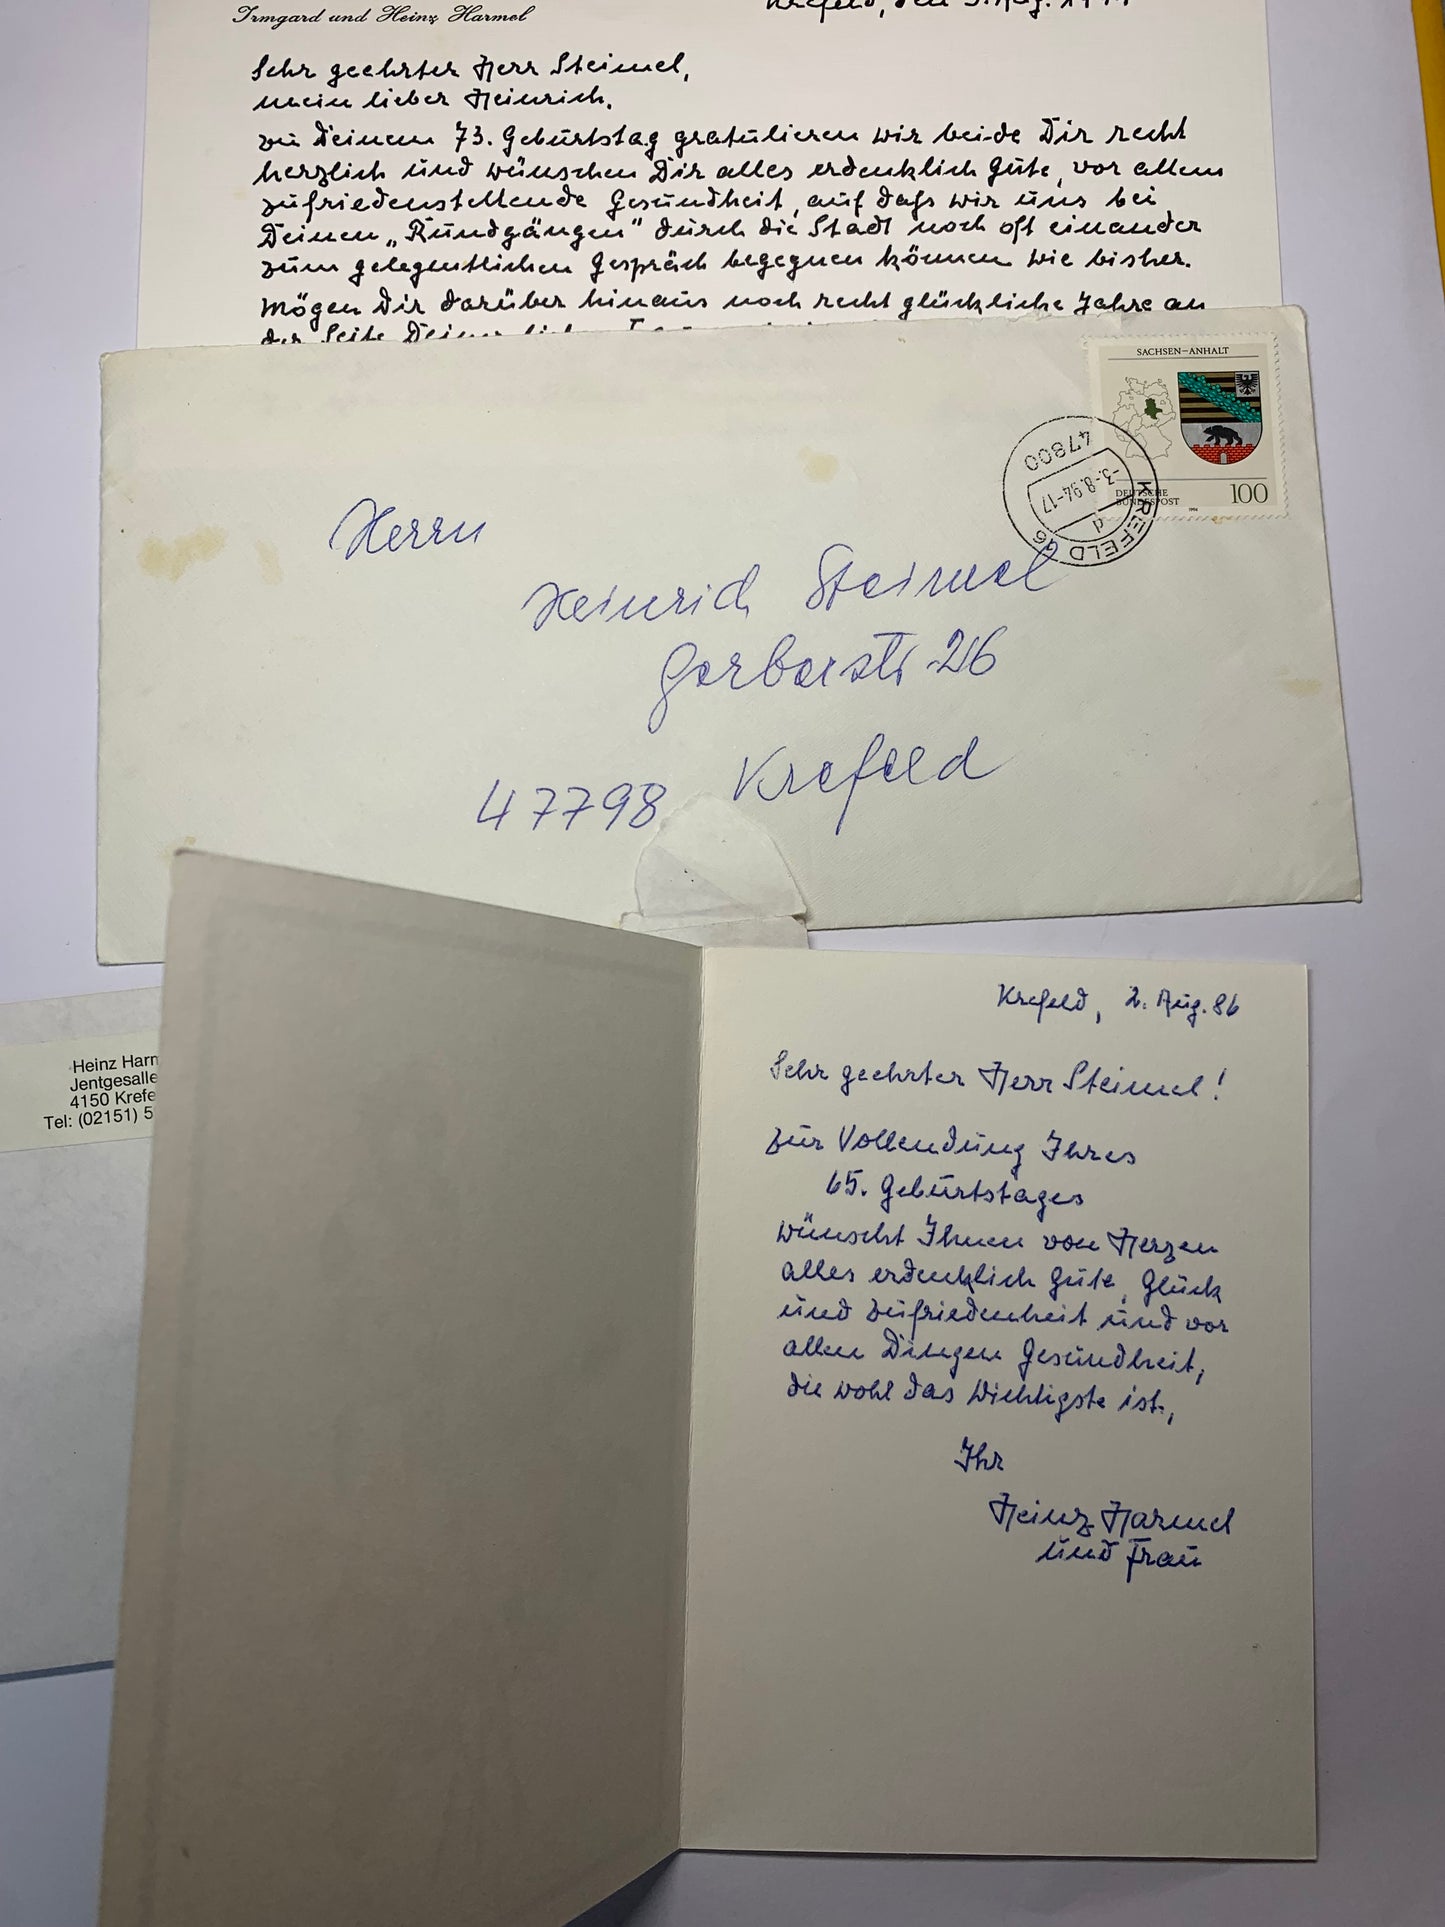 Irmgard und Heinz Harmel
Krefeld, den 3. Aug. 1994
Sehr geehrter Herr Steimel,
mein lieber Heinrich.
zu Deinem 73. Geburtstag gratulieren wir beide Dir recht
herzlich und wünschen Dir alles erdenklich Gute, vor allem
zufriedenstellende Gesundheit, auf daß wir uns bei
Deinen „Rundgängen" durch die Stadt noch oft einander
zum gelegentlichen Gespräch begegnen können wie bisher.
Mögen Dir darüber hinaus noch recht glückliche Jahre an
der Seite Deiner lieben
SACHSEN-ANHALT
DEUTSCHE
BUNDESPOST
100
1994
47800
-3.-8.94-17
d
KREFELD
Herrn
Heinrich Steimel
Gerberstr. 26
47798 Krefeld
Heinz Harm
Jentgesalle
4150 Krefe
Tel: (02151) 5
Krefeld, 2. Aug. 86
Sehr geehrter Herr Steimel!
Zur Vollendung Ihres
65. Geburtstages
wünscht Ihnen von Herzen
alles erdenklich Gute, Glück
und Zufriedenheit und vor
allen Dingen Gesundheit,
die wohl das Wichtigste ist,
Ihr
Heinz Harmel
und Frau